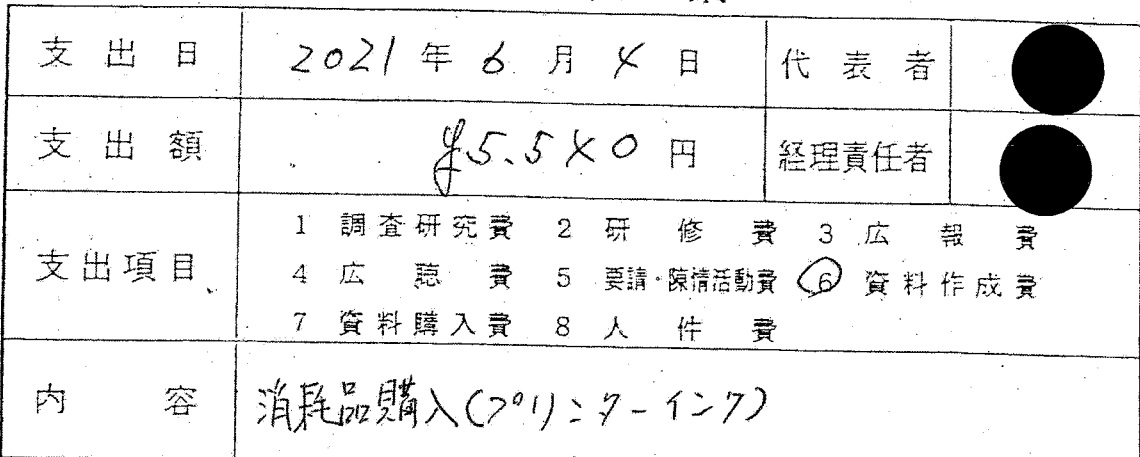 支出日 2021年6月4日 代表者
支出額 ¥5.540円 経理責任者
支出項目 1 調査研究費 2 研修費 3 広報費
4 広聴費 5 要請・陳情活動費 6 資料作成費
7 資料購入費 8 人件費
内容 消耗品購入(プリンターインク)